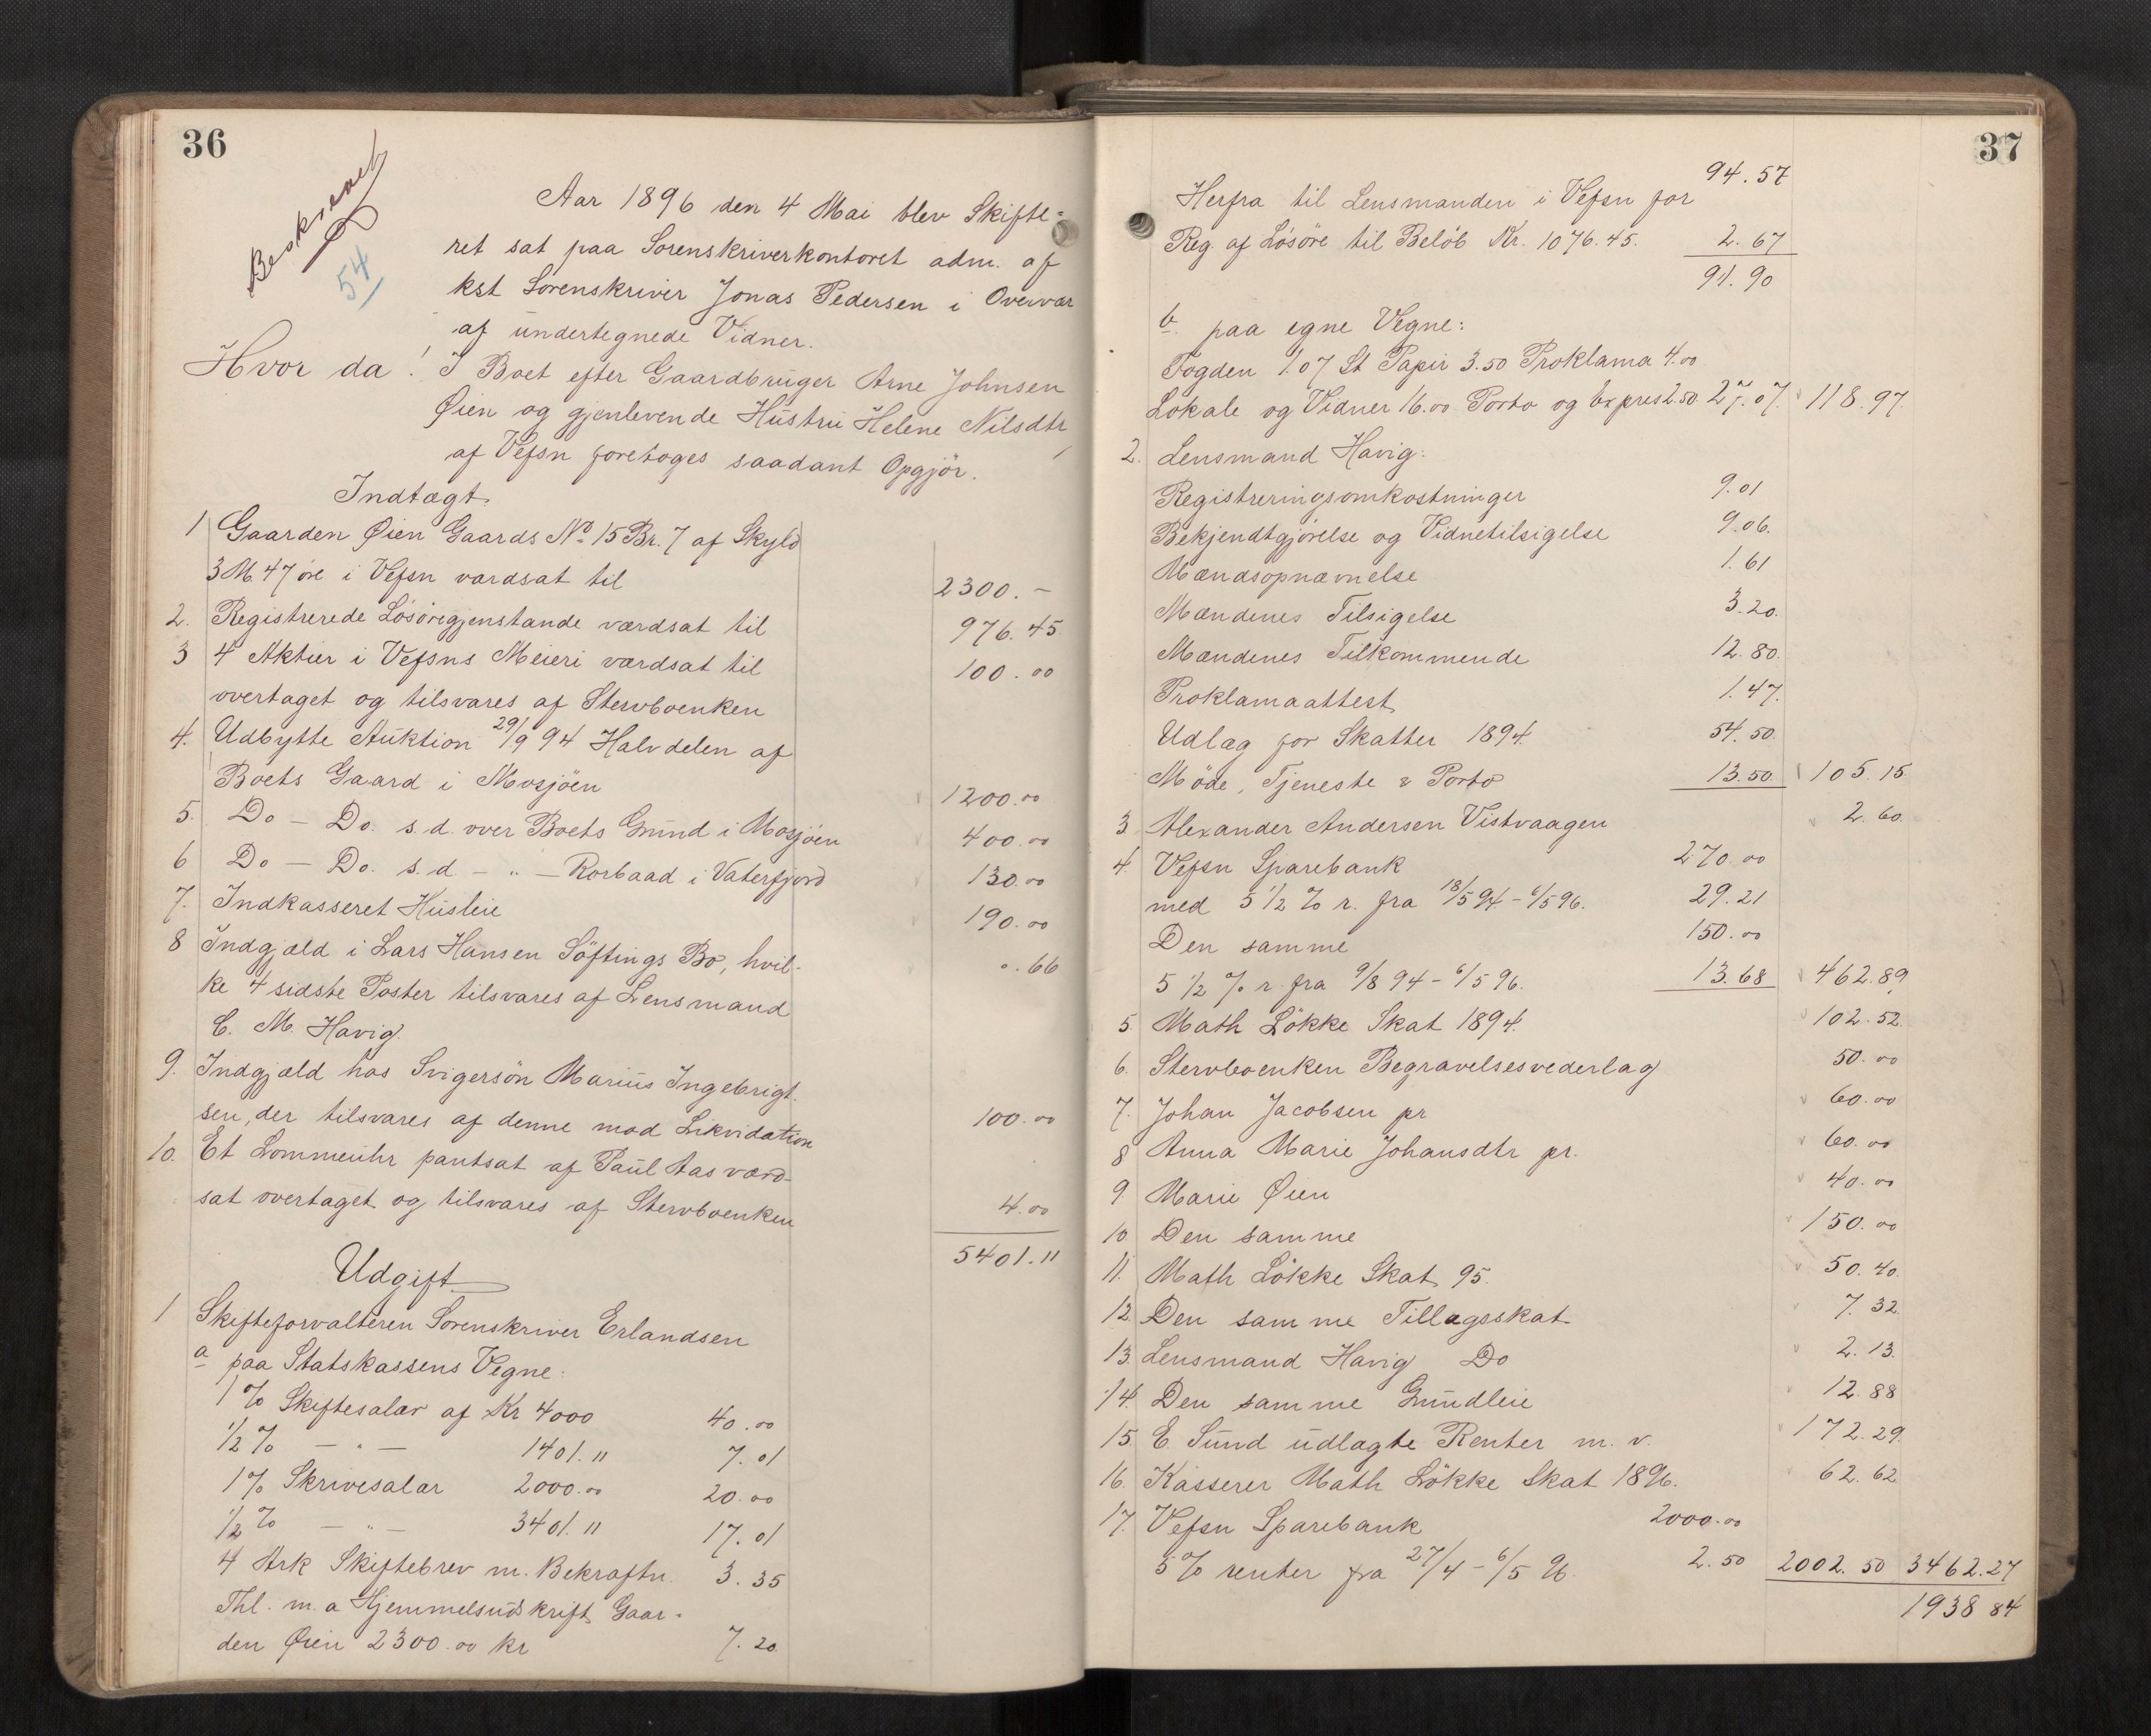 36
Beskrevet
54
Aar 1896 den 4 Mai blev Skifte-
ret sat paa Sorenskriverkontoret adm. af
kst Sorenskriver Jonas Pedersen i Overvær
af undertegnede Vidner.
Hvor da! I Boet efter Gaardbruger Arne Johnsen
Øien og gjenlevende Hustru Helene Nilsdtr
af Vefsn foretoges saadant Opgjör.
Indtægt
1 Gaarden Øien Gaards No 15 Br. 7 af Skyld
3 M. 47 öre i Vefsn værdsat til 2300.-
2. Registrerede Lösöregjenstande værdsat til 976.45
3 4 Aktier i Vefsns Meieri værdsat til 100.00
overtaget og tilsvares af Stervboenken
4. Udbytte Auktion 29/9 94 Halvdelen af
Boets Gaard i Mosjöen 1200.00
5. Do - Do. s.d. over Boets Grund i Mosjöen 400.00
6 Do - Do. s.d - " - Rorbaad i Vaterfjord 130.00
7. Indkasseret Husleie 190.00
8 Indgjæld i Lars Hansen Söftings Bo, hvil- 0.66
ke 4 sidste Poster tilsvares af Lensmand
C. M. Havig.
9. Indgjæld hos Svigersön Marius Ingebrigt-
sen, der tilsvares af denne mod Likvidation 100.00
10. Et Lommeuhr pantsat af Paul Aas værd-
sat overtaget og tilsvares af Stervboenken 4.00
5401.11
Udgift
1 Skifteforvalteren Sorenskriver Erlandsen
a paa Statskassens Vegne:
1 % Skiftesalær af Kr 4000 40.00
1/2 % - " - 1401.11 7.01
1 % Skrivesalær 2000.00 20.00
1/2 % - " - 3401.11 17.01
4 Ark Skiftebrev m. Bekræftn. 3.35
Thl. m. a Hjemmelsudskrift Gaar-
den Øien 2300.00 kr 7.20
37
94.57
Herfra til Lensmanden i Vefsn for
Reg. af Lösöre til Belöb Kr. 1076.45. 2.67
91.90
b. paa egne Vegne:
Fogden 1.07 St Papir 3.50 Proklama 4.00
Lokale og Vidner 16.00 Porto og Expres 2.50 27.07. 118.97.
2. Lensmand Havig:
Registreringsomkostninger 9.01
Bekjendtgjörelse og Vidnetilsigelse 9.06.
Mændsopnævnelse 1.61
Mændenes Tilsigelse 3.20.
Mændenes Tilkommende 12.80.
Proklamaattest 1.47.
Udlæg for Skatter 1894. 54.50.
Möde, Tjeneste & Porto 13.50 105.15
3 Alexander Andersen Vistvaagen 2.60.
4. Vefsn Sparebank 270.00
med 5 1/2 % r. fra 18/5 94 - 6/5 96. 29.21
Den samme 150.00
5 1/2 % r. fra 9/8 94 - 6/5 96. 13.68 462.89
5. Math Lökke Skat 1894. 102.52.
6. Stervboenken Begravelsesvederlag 50.00
7. Johan Jacobsen pr 60.00
8 Anna Marie Johansdtr pr. 60.00
9 Marie Øien 40.00
10 Den samme 150.00
11. Math Lökke Skat 95. 50.40.
12 Den samme Tillægsskat 7.32.
13. Lensmand Havig Do 2.13.
14. Den samme Grundleie 12.88
15. E. Sund udlagte Renter m. v. 172.29.
16. Kasserer Math Lökke Skat 1896. 62.62
17. Vefsn Sparebank 2000.00
5 % renter fra 27/4 - 6/5 96. 2.50 2002.50 3462.27
1938 84